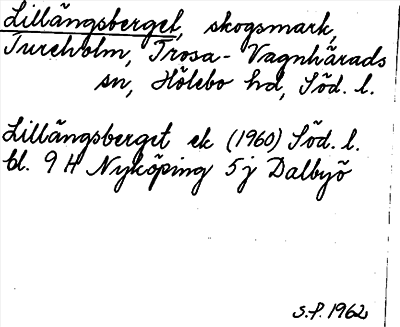 Lillängsberget, skogsmark,
Tureholm, Trosa-Vagnhärads
sn, Hölebo hd, Söd. l.
Lillängsberget ek (1960) Söd. l.
bl. 9 H Nyköping 5 j Dalbyö
S.P. 1962